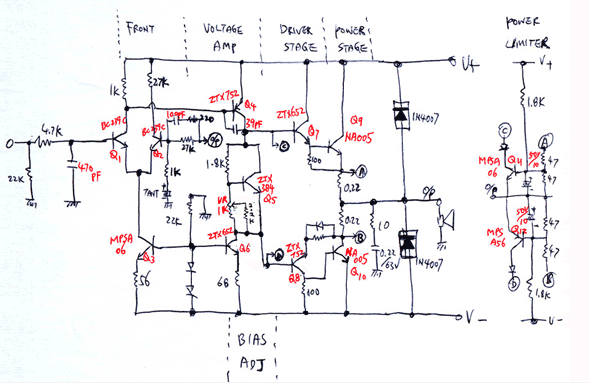 FRONT
VOLTAGE
AMP
DRIVER
STAGE
POWER
STAGE
POWER
LIMITER
V+
V+
1K
27K
ZTX752
Q4
100PF
220
39PF
ZTX652
Q7
Q9
NA005
1N4007
1.8K
C
A
4.7K
BC239C
Q1
Q2
27K
O/P
C
100
A
MPSA
06
Q11
47
47
470
PF
22K
1K
1.8K
ZTX
Q5
0.22
O/P
O/P
TANT
22K
VR
1K
0.22
10
47
47
MPSA
06
Q3
ZTX652
Q6
D
ZTX
752
Q8
B
NA
005
Q10
0.22
63V
1N4007
MPS
A56
Q12
D
B
56
68
100
1.8K
V-
V-
BIAS
ADJ